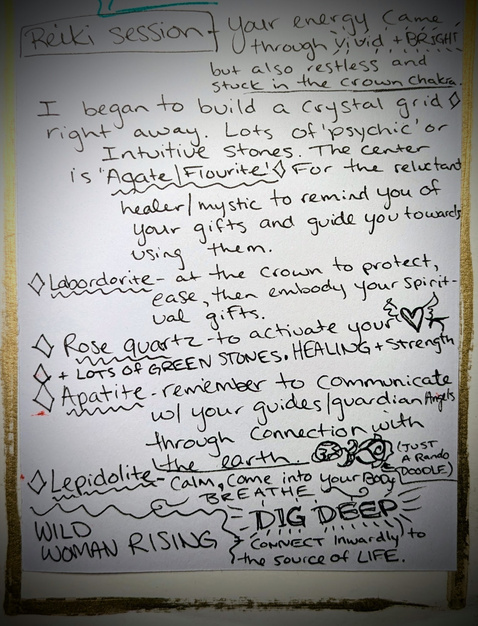 Reiki Session - Your energy came
through vivid + BRIGHT
but also restless and
stuck in the crown chakra.
I began to build a crystal grid
right away. Lots of 'psychic' or
Intuitive stones. The center
is 'Agate/Flourite' For the reluctant
healer/mystic to remind you of
your gifts and guide you towards
using them.
Labordorite - at the crown to protect,
ease, then embody your spirit-
ual gifts.
Rose quartz - to activate your
+ LOTS OF GREEN STONES. HEALING + Strength
Apatite - remember to communicate
w/ your guides/guardian Angels
through connection with
the earth.
(JUST
A Rando
DOODLE)
Lepidolite - CALM, Come into your BODY
BREATHE
WILD
WOMAN RISING
DIG DEEP
CONNECT Inwardly to
the source of LIFE.